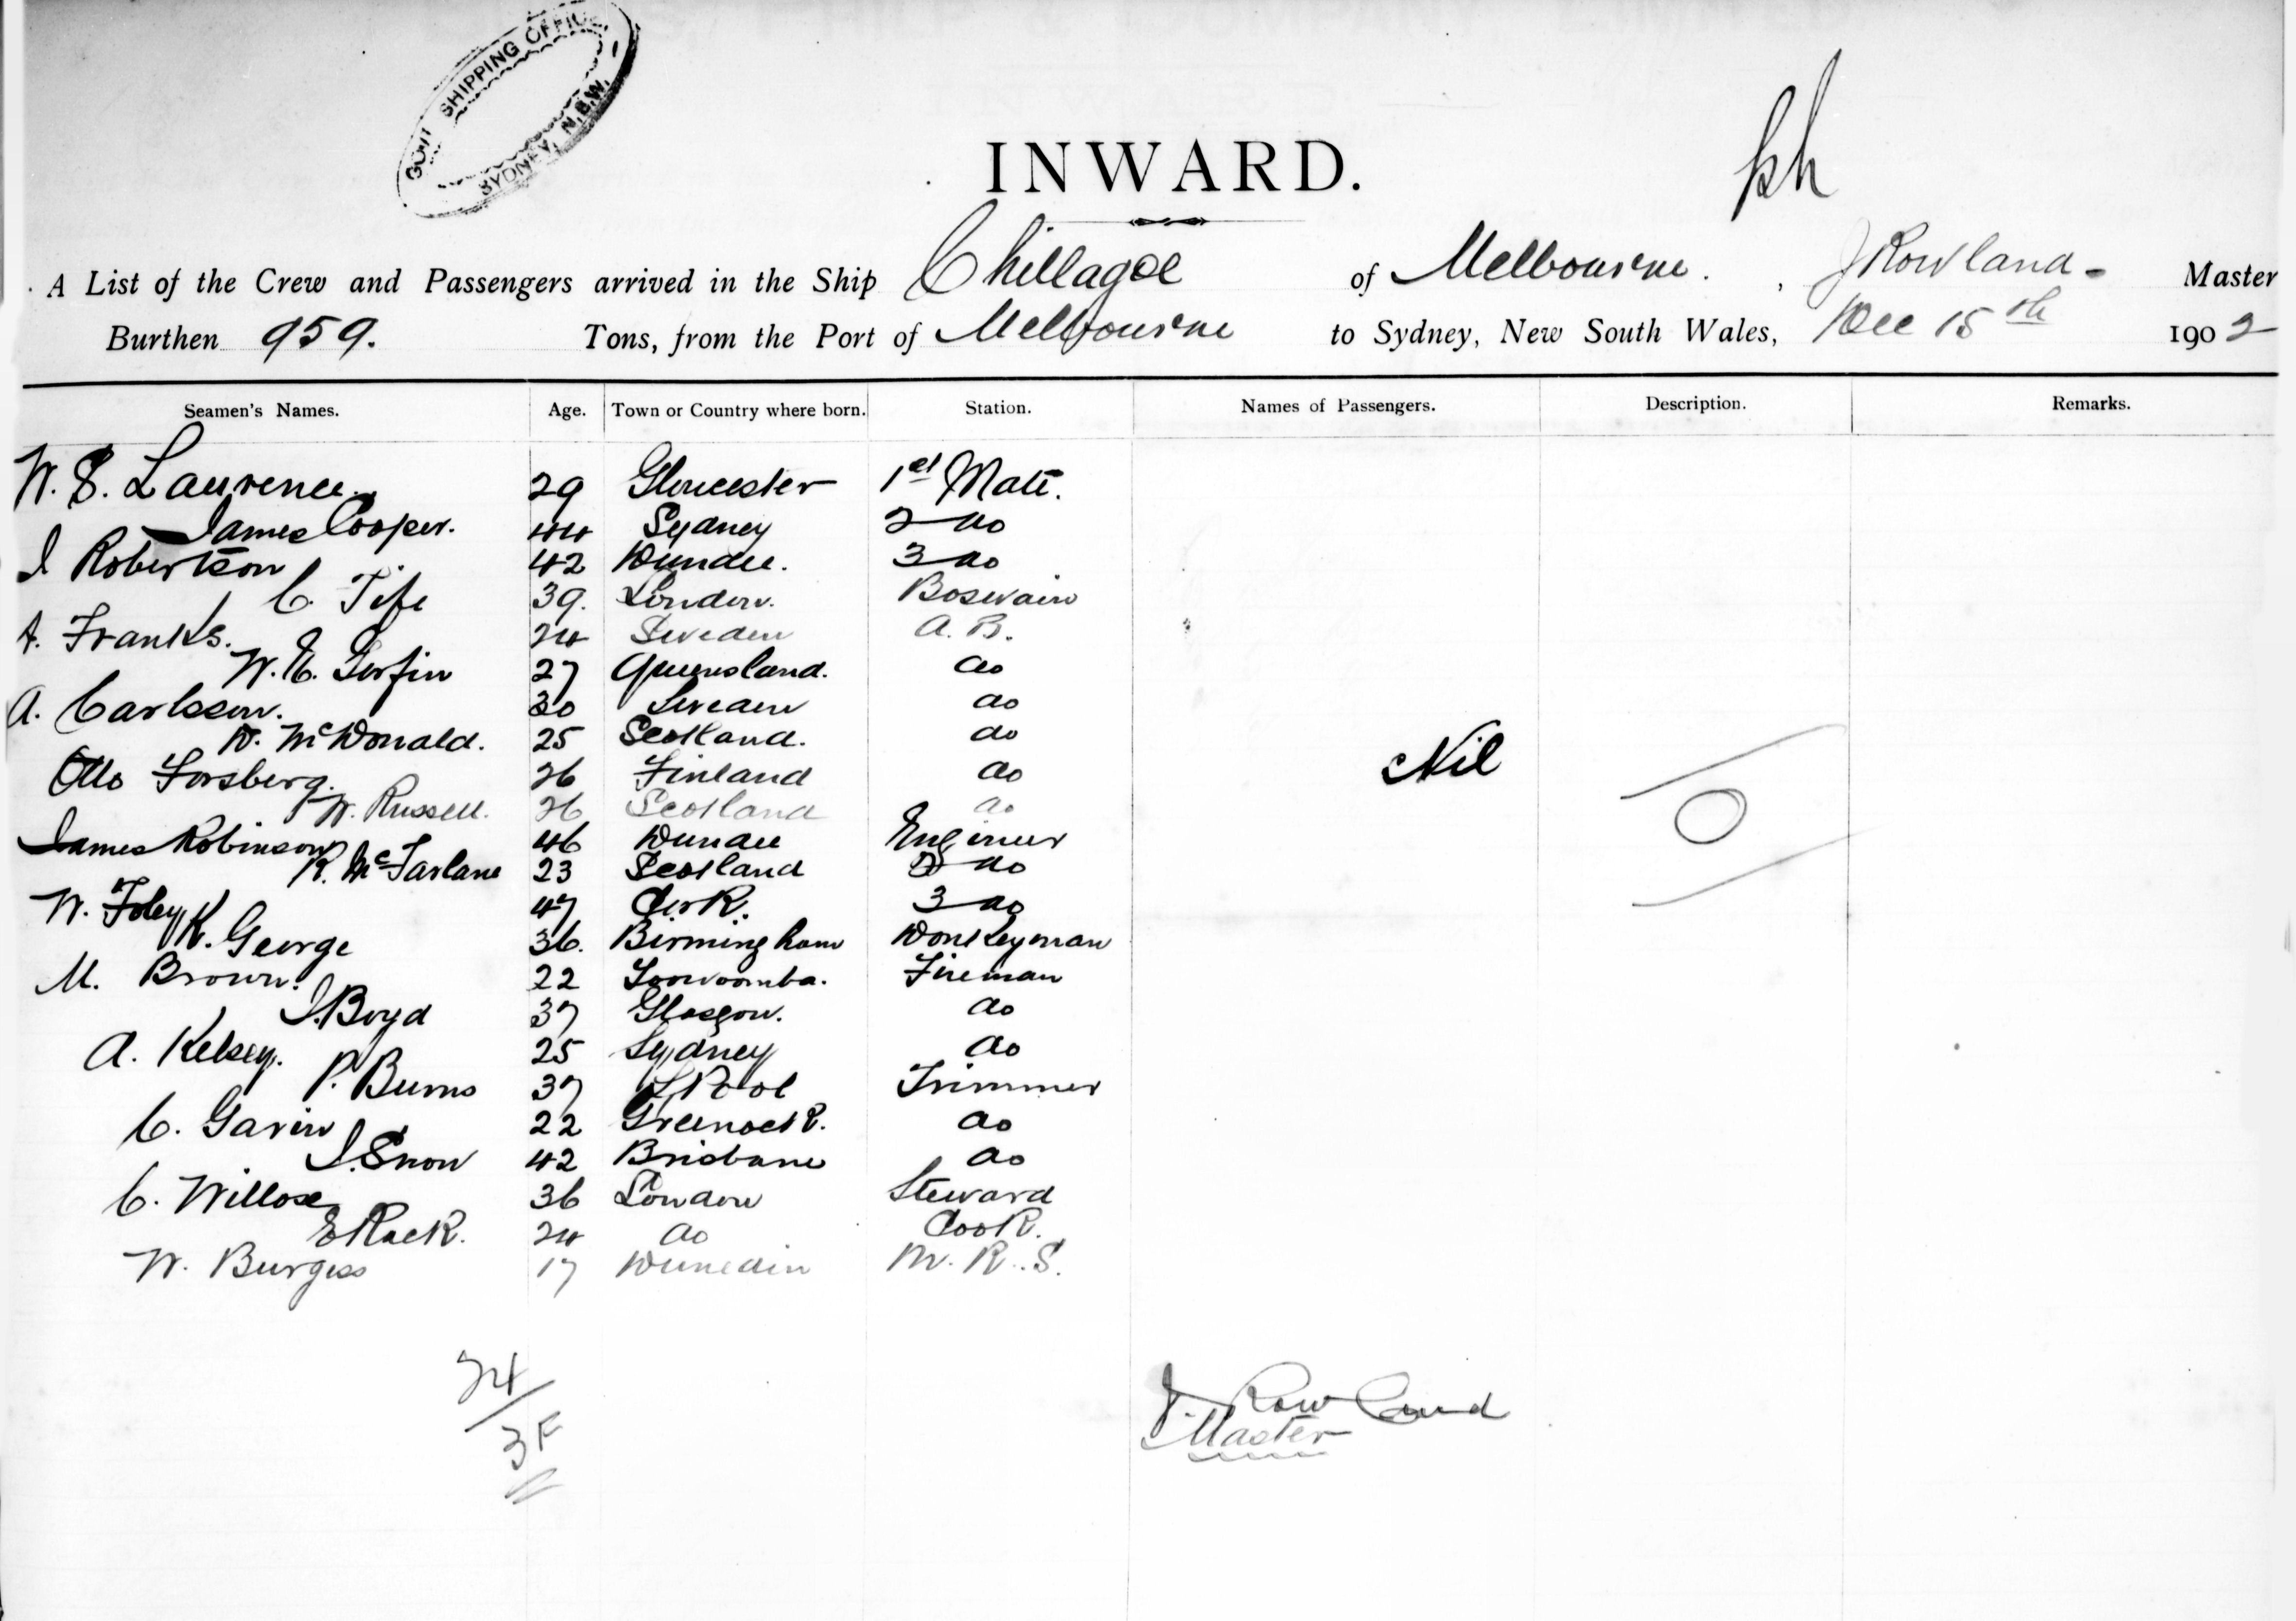 GOVT SHIPPING OFFICE
SYDNEY, N.S.W.
INWARD.
A List of the Crew and Passengers arrived in the Ship Chillagoe of Melbourne. , J Rowland - Master
Burthen 959. Tons, from the Port of Melbourne to Sydney, New South Wales, Dec 15th 1902
Seamen's Names. Age. Town or Country where born. Station. Names of Passengers. Description. Remarks.
W. S. Laurence. 29 Gloucester 1st Mate.
James Cooper. 44 Sydney 2 do
J Robertson 42 Dundee. 3 do
C. Tife 39. London. Boswain
A. Franks. 24 Sweden A. B.
W. C. Torfin 27 Queensland. do
A. Carlsson. 30 Sweden do
D. McDonald. 25 Scotland. do
Otto Forsberg. 26 Finland do Nil
W. Russell. 26 Scotland do
James Robinson 46 Dundee Engineer
R. McFarlane 23 Scotland 2 do
W. Foley 47 Cork. 3 do
K. George 36. Birmingham Donkeyman
M. Brown. 22 Toowoomba. Fireman
J. Boyd 37 Glasgow. do
A. Kelsey. 25 Sydney do
P. Burns 37 LPool Trimmer
C. Gavin 22 Greenock. do
J. Snow 42 Brisbane do
C. Willose 36 London Steward
E Rack. 24 do Cook.
W. Burgess 17 Dunedin M. R. S.
24
3F
J. Rowland
Master